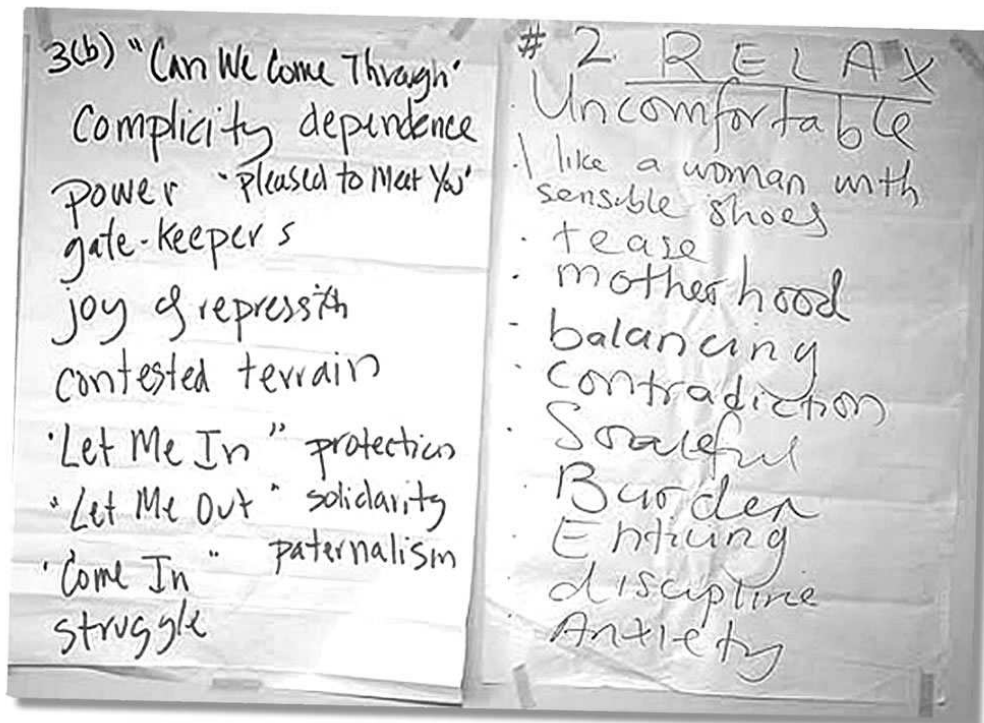 3(b) "Can We Come Through"
Complicity dependence
power "pleased to Meet You"
gate-keepers
joy of repression
contested terrain
"Let Me In" protection
"Let Me Out" solidarity
"Come In" paternalism
struggle
# 2. RELAX
Uncomfortable
. I like a woman with
sensible shoes
. tease
. motherhood
- balancing
. contradiction
. Graceful
. Burden
. Enticing
. discipline
. Anxiety